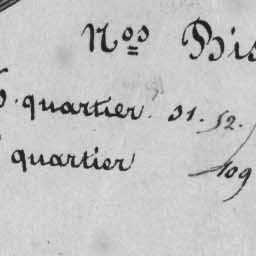 Nos Bis
quartier. 31. 52.
quartier 109